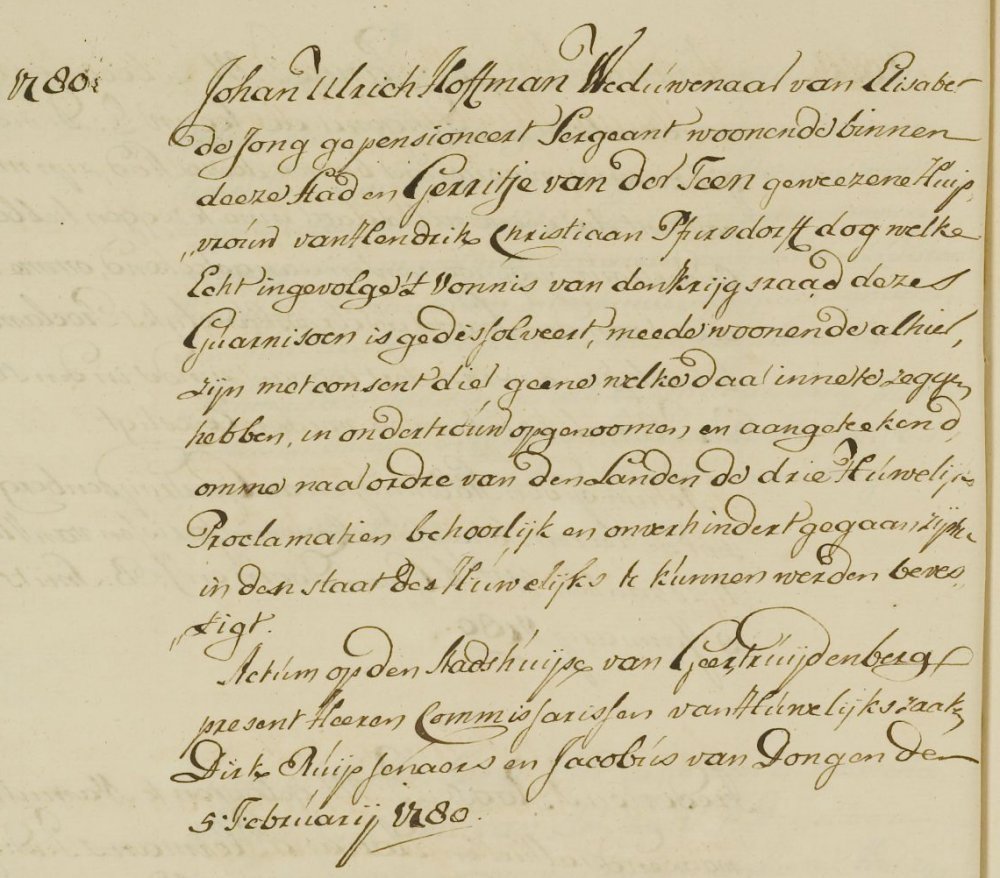 1780:
Johan Ulrich Hoffman Weduwenaar van Elisabet
de Jong gepensioneert Sergeant woonende binnen
deeze Stad en Gerritje van der Teen geweezene Huis„
„vrouw van Hendrik Christiaan Pfursdorff dog welke
Echt ingevolge 't Vonnis van den krijgsraad dezes
Guarnisoen is gedissolveert, meede woonende alhier,
zijn met consent dier geene welke daar inne te zeggen
hebben, in ondertrouw opgenoomen en aangetekend,
omme naar ordre van den Landen de drie Huwelijks
Proclamatien behoorlijk en onverhindert gegaan zijnde
in den staat des Huwelijks te kunnen werden beves„
„tigt.
Actum op den Stadshuijse van Geertruijdenberg
present Heeren Commissarissen van Huwelijks zaaken
Dirk Ruijssenaers en Jacobus van Dongen den
5: Februarij 1780.